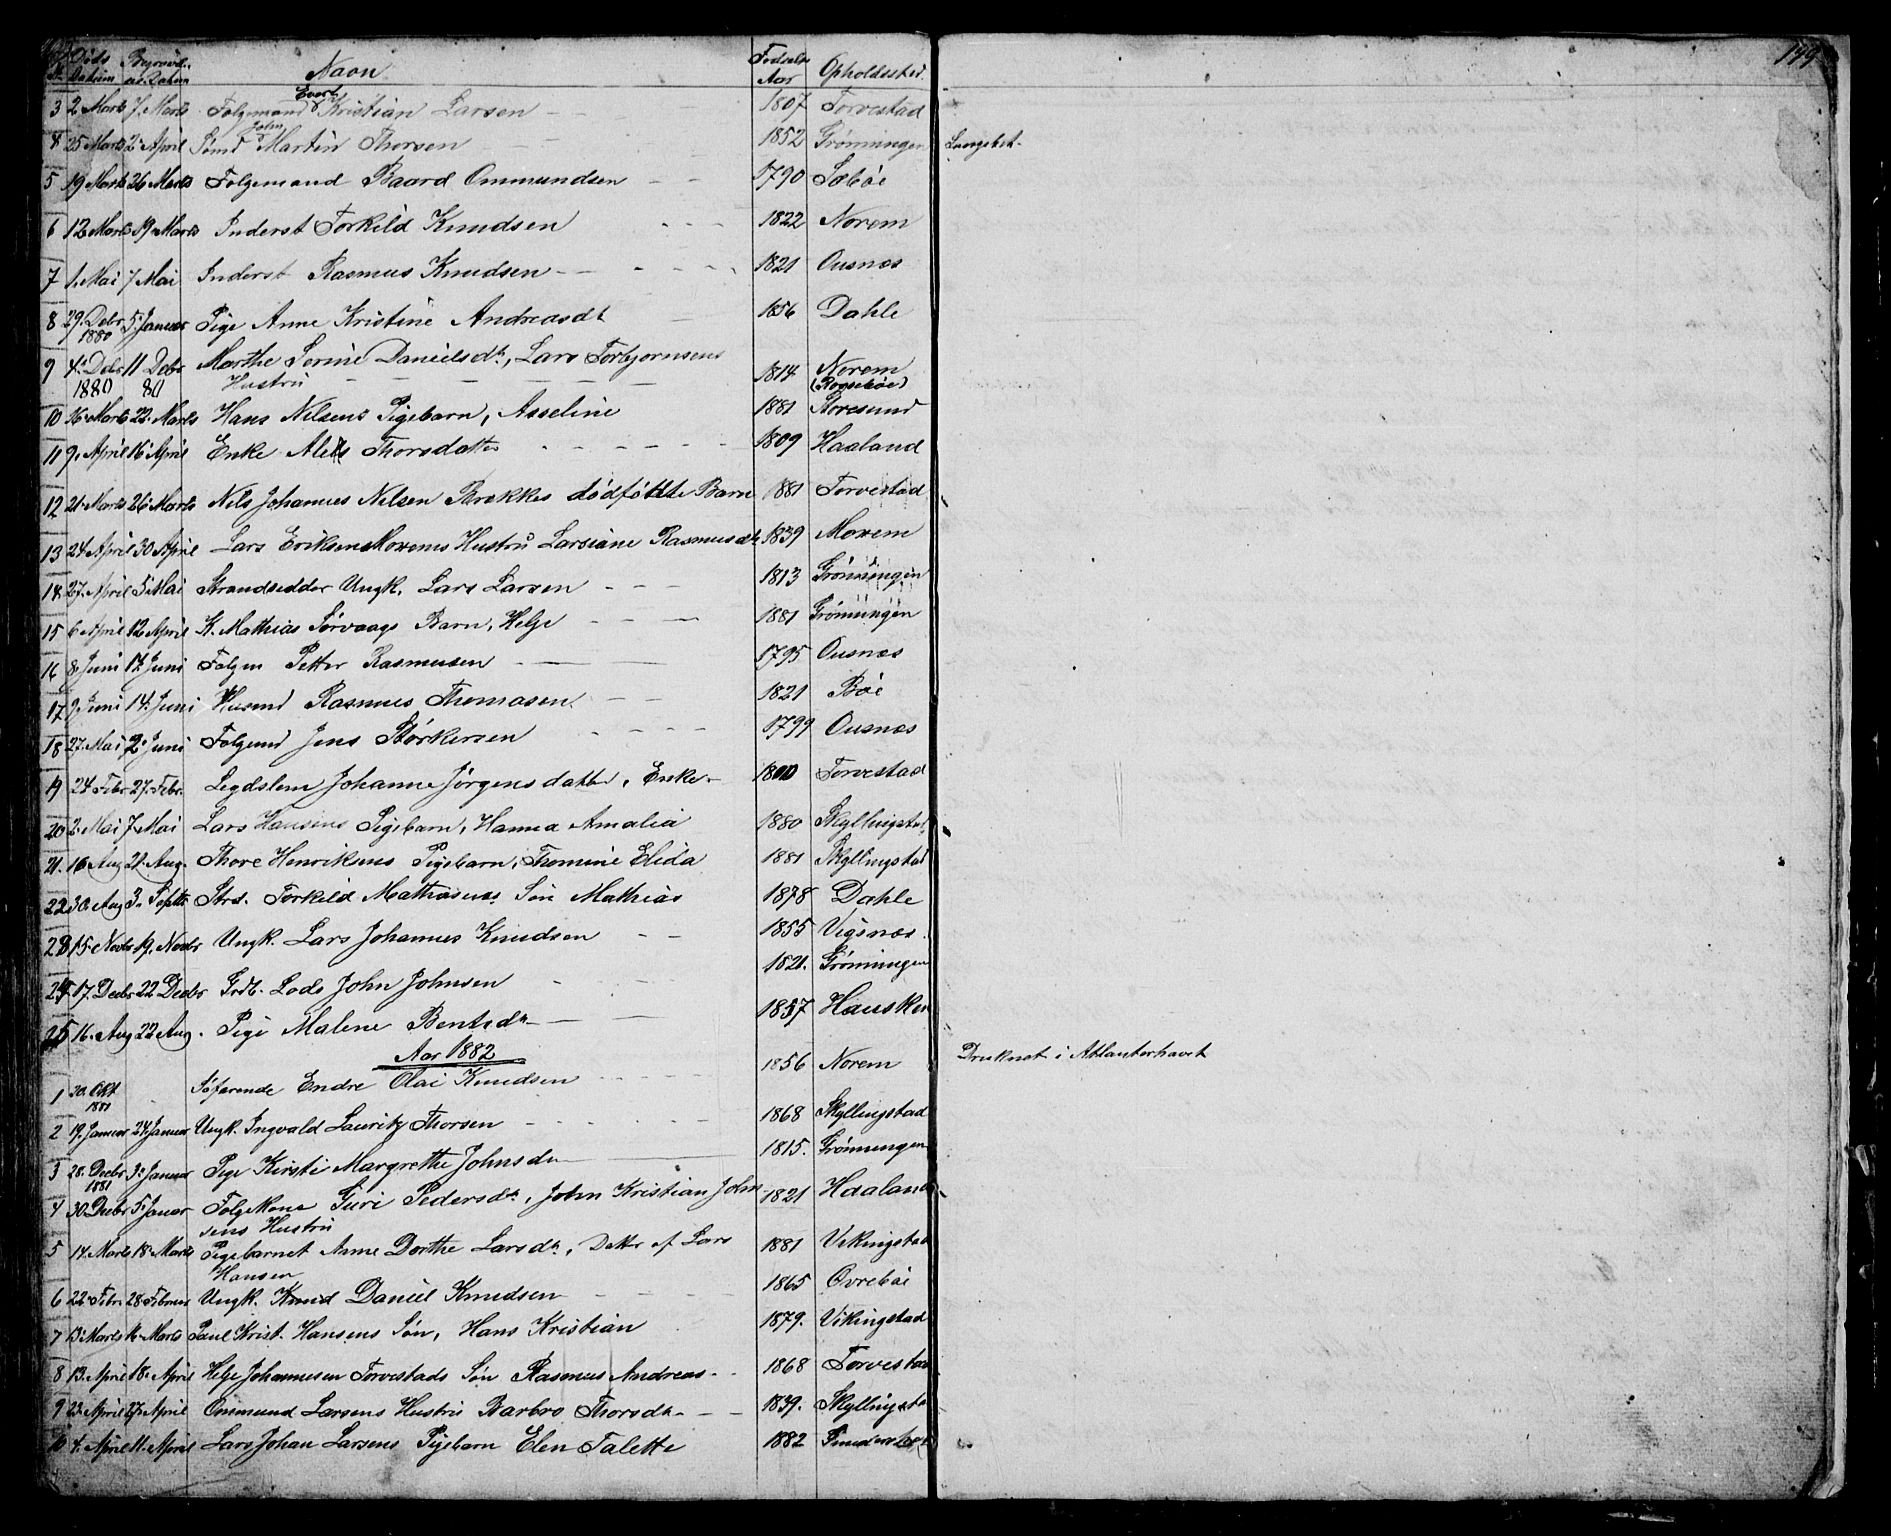 149
Nr Døds Datum Begravel. Datum Navn Fødsels Aar Opholdssted
3 2 Marts 7. Marts Folgemand Evert Kristian Larsen 1807 Torvestad
4 25 Marts 2. April John Martin Thorsen 1852 Grønningen
5 19 Marts 26 Marts Folgemand Baard Ommundsen 1790 Sæbøe
6 12 Marts 19. Marts Inderst Torkild Knudsen 1822 Norem
7 1. Mai 7 Mai Inderst Rasmus Knudsen 1821 Ousnæs
8 29. Debr 1880 5. Januar Pige Anne Kristine Andreasdt 1856 Dahle
9 4. Debr 1880 11 Debr 80 Marthe Serine Danielsdt, Lars Torbjørnsens
Hustru 1814 Norem
10 16. Marts 22. Marts Hans Nilsens Pigebarn, Asseline 1881 Storesund
11 9. April 16 April Enke Alets Thorsdatter 1809 Haaland
12 21. Marts 26 Marts Nils Johannes Nilsen Brekkes dødføtte Barn 1881 Torvestad
13 24 April 30 April Lars Eriksen Norems Hustru Larsiane Rasmusdt 1839 Norem
14 27. April 5. Mai Strandsidder Ungk. Lars Larsen 1813 Grønningen
15 6 April 12 April K. Mathias Sørvaags Barn, Helge 1881 Grønningen
16 8. Juni 14. Juni Folgem Petter Rasmussen 1795 Ousnæs
17 9. Juni 14. Juni Husmd Rasmus Thomasen 1821 Bøe
18 27. Mai 2. Juni Folgemd Jens Størkersen 1799 Ousnæs
19 24 Febr 27. Febr. Legdslem Johanne Jørgensdatter, Enke 1800 Torvestad
20 2. Mai 7. Mai Lars Hansens Pigebarn, Hanna Amalia 1880 Skyllingstad
21. 16 Aug 21. Aug. Thore Henriksens Pigebarn, Thomine Elida 1881 Skyllingstad
22 30. Aug 3. Septbr Strs. Torkild Mathiasens Søn Mathias 1878 Dahle
23 15. Novbr 19. Novbr Ungk. Lars Johannes Knudsen 1855 Vigsnæs
24 17. Decbr 22 Decbr Grdb. Lods John Johnsen 1821. Grønningen
25 16. Aug 22 Aug. Pige Malene Bentsdt 1857 Hausken
Aar 1882
1 30. Okt 1881 Søfarende Endre Olai Knudsen 1856 Norem Druknet i Atlanterhavet
2 19. Januar 24. Januar Ungk. Ingvald Lauritz Thorsen 1868 Skyllingstad
3 28. Decbr 1881 3. Januar Pige Kirsti Margrethe Johnsdt 1815. Grønningen
4 30 Decbr 5. Januar Folgekone Guri Pedersdt, John Kristian John
sens Hustru 1821 Haaland
5 14. Marts 18. Marts Pigebarnet Anne Dorthe Larsdt, Dattr af Lars
Hansen 1881 Vikingstad
6 22. Febr 28. Februar Ungk. Knud Daniel Knudsen 1865 Øvrebøe
7 13. Marts 16. Marts Paul Krist. Hansens Søn, Hans Kristian 1879. Vikingstad
8 13. April 18. April Helge Johannesen Torvestads Søn Rasmus Andreas 1868 Torvestad
9 23. April 27. April Ommund Larsens Hustru Barbro Thorsdt 1839. Skyllingstad
10 4. April 11. April Lars Johan Larsens Pigebarn Elen Talette 1882